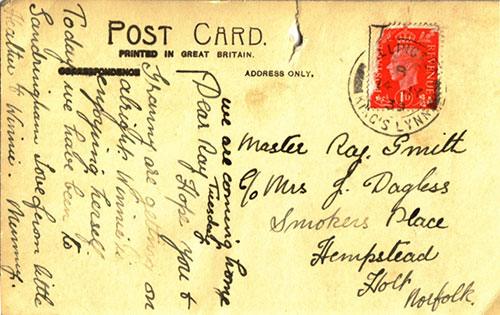 POST CARD.
PRINTED IN GREAT BRITAIN.
CORRESPONDENCE
ADDRESS ONLY.
we are coming home
Tuesday
Dear Ray Hope you &
Granny are getting on
alright. Winnie is
enjoying herself
Today we have been to
Sandringham Love from little
Walter & Winnie. Mummy.
REVENUE
1D
KING'S LYNN
Master Ray. Smith
C/o Mrs J. Dagless
Smokers Place
Hempstead
Holt
Norfolk.